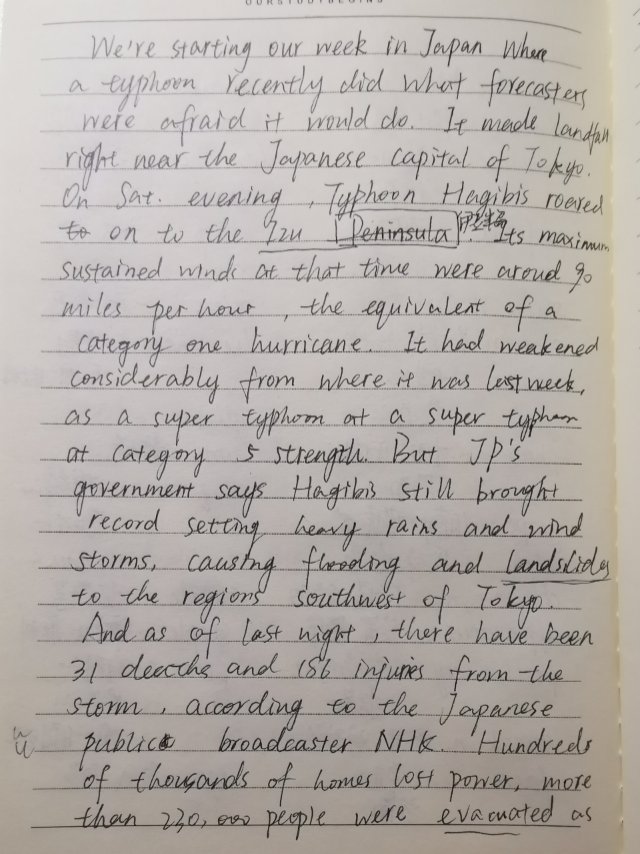 We're starting our week in Japan where
a typhoon recently did what forecasters
were afraid it would do. It made landfall
right near the Japanese capital of Tokyo.
On Sat. evening, Typhoon Hagibis roared
to on to the Izu Peninsula 伊豆半岛. Its maximum
sustained winds at that time were aroud 90
miles per hour, the equivalent of a
category one hurricane. It had weakened
considerably from where it was last week,
as a super typhoon at a super typhoon
at category 5 strength. But JP's
government says Hagibis still brought
record setting heavy rains and wind
storms, causing flooding and landslides
to the regions southwest of Tokyo.
And as of last night, there have been
31 deaths and 186 injuries from the
storm, according to the Japanese
public broadcaster NHK. Hundreds
of thousands of homes lost power, more
than 230,000 people were evacuated as